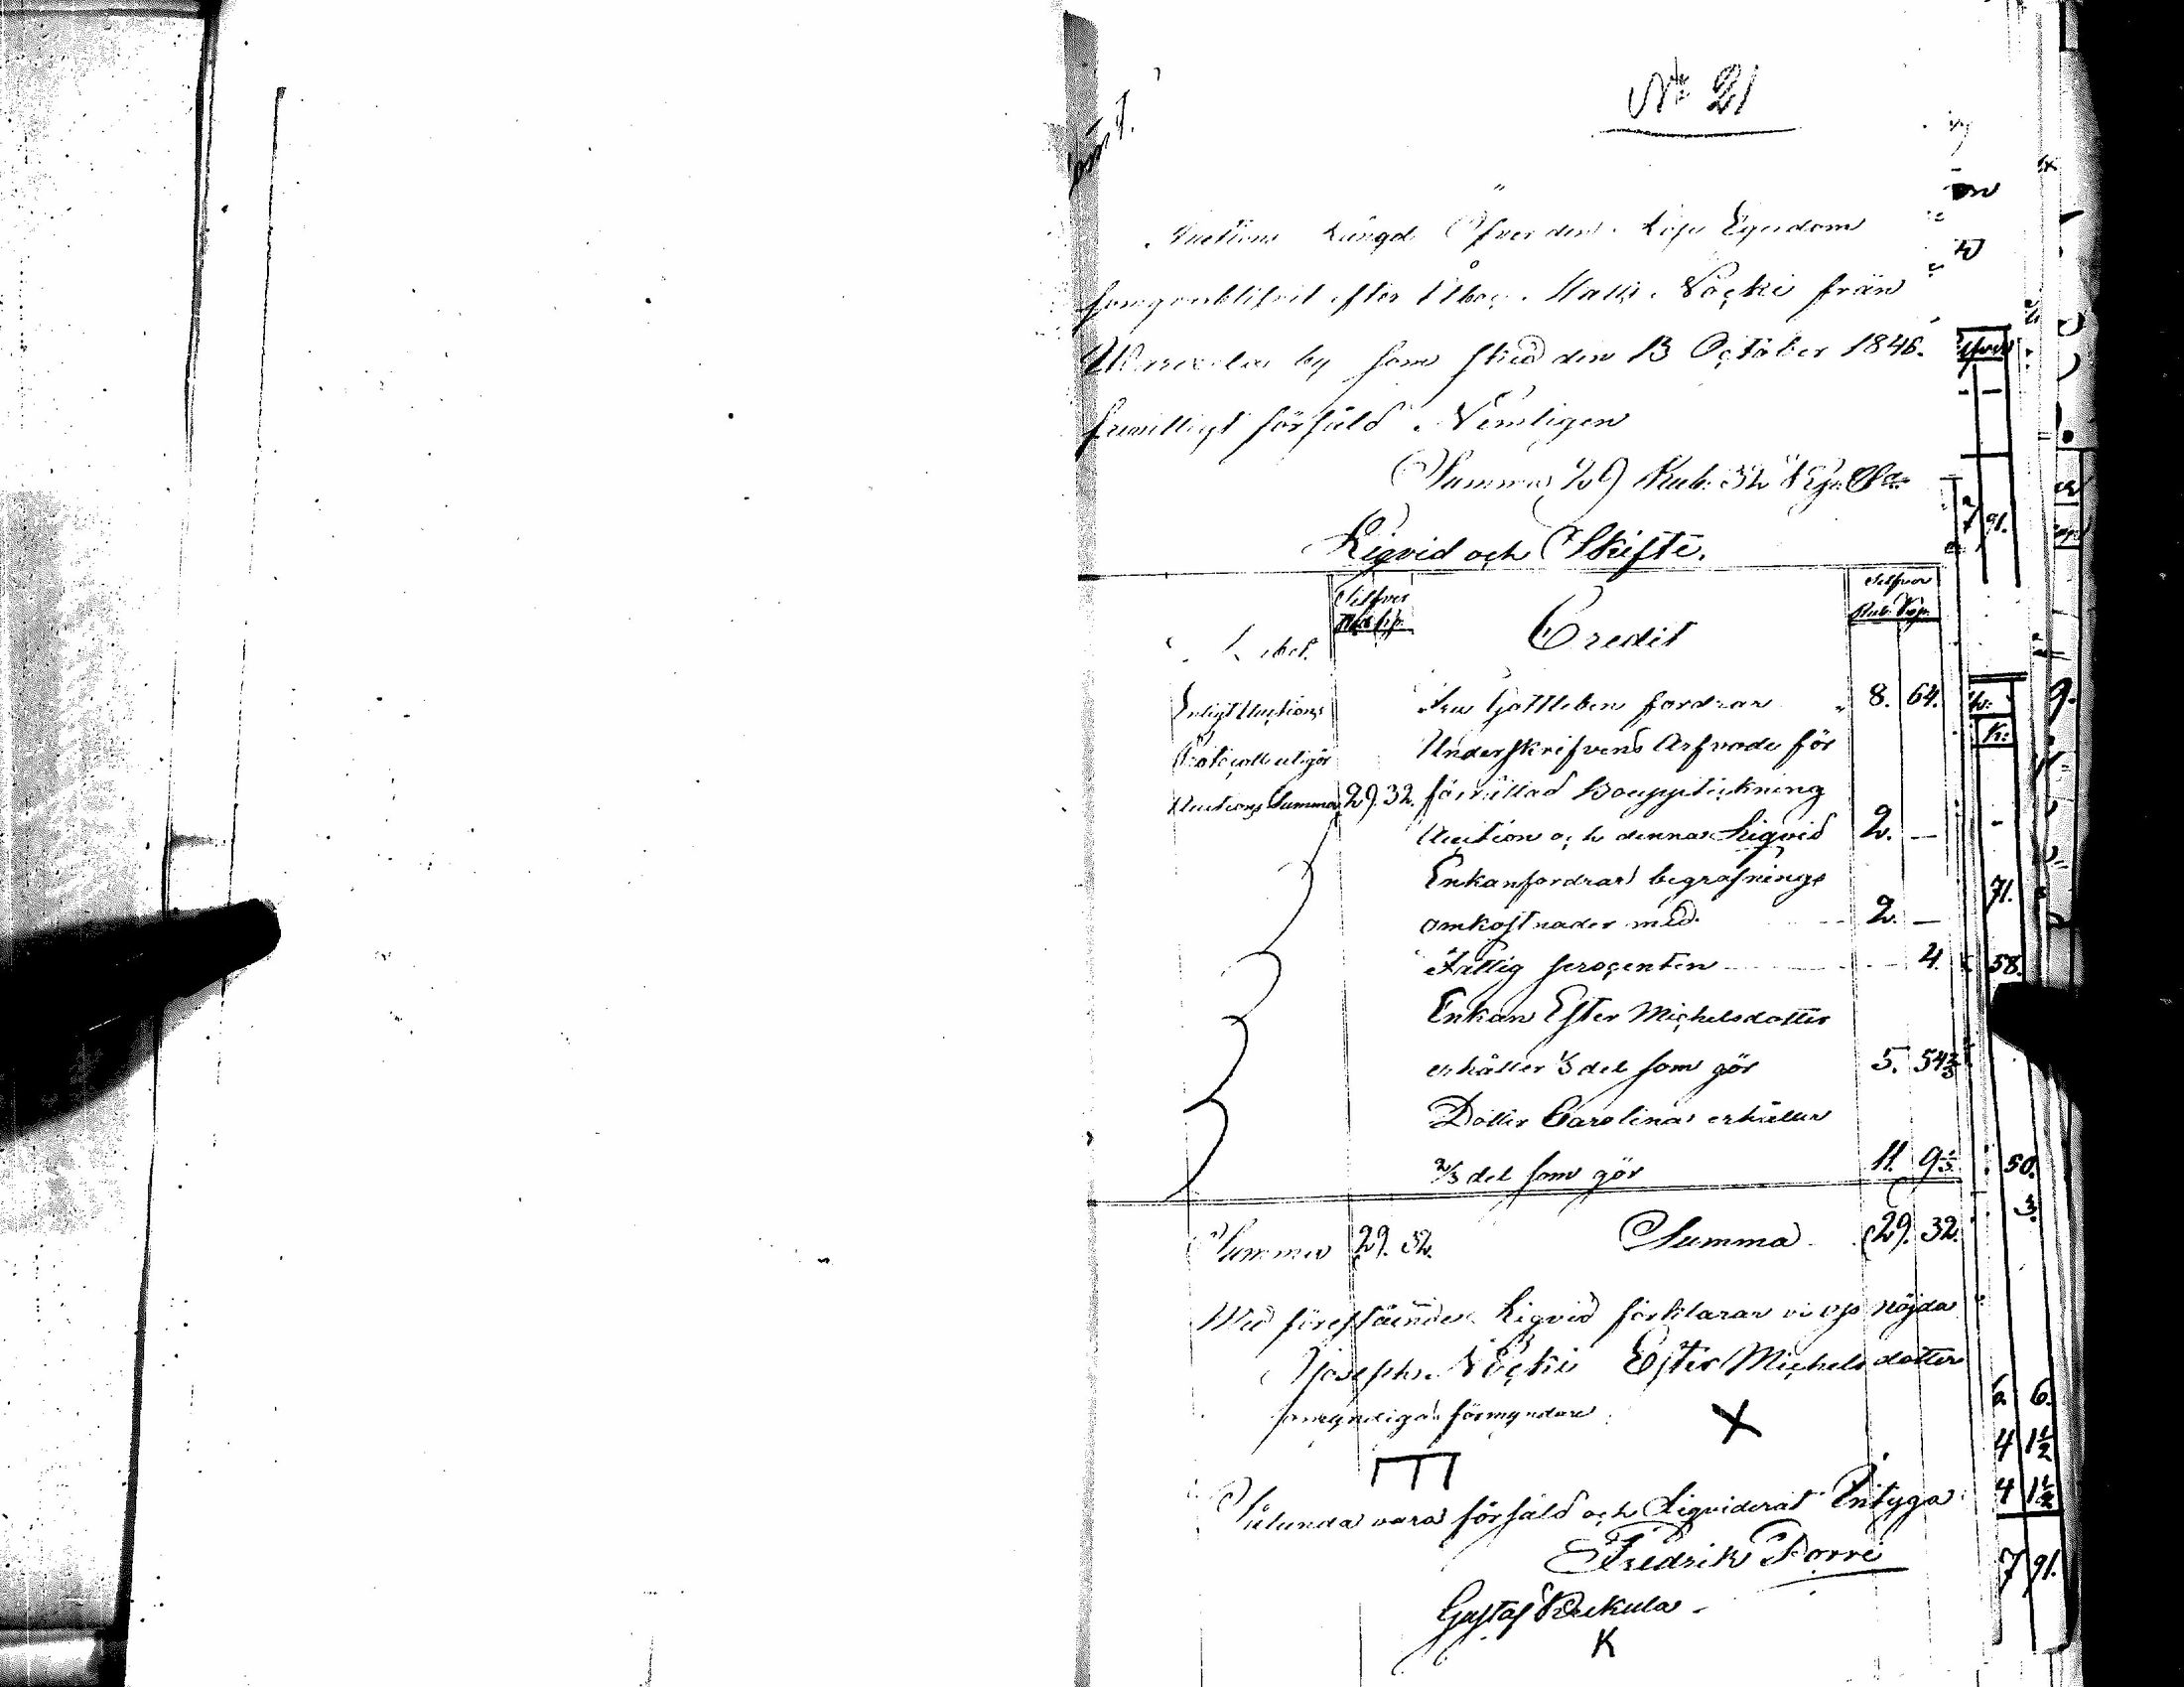 No 21
Auctions Längd Öfver den Lösa Egendom
som qvarblifvit efter Åboe Matts Nocki från
by som skied den 13 October 1846.
frivilligt försåld Nemligen
Summa 29 Rub. 32 Kop. Sr.
Liqvid och Skifte.
Debet. Silfver Rub. Kop. Credit Silfver Rub. Kop.
Enligt Auctions Gottleben fordrar 8. 64.
Protocoll utgör Underskrifvens Arfvode för
Auctions Summa 29. 32. förrättad Bouppteckning
Auction och denna Liqvid 2. —
Enkan fordrar begrafnings
omkostnader med 2. —
Fattig procenten 4.
Enkan Ester Michelsdotter
erhåller 1/3 del som gör 5. 54 2/3
Dotter Carolina erhåller
2/3 del som gör 11. 9 1/3
Summa 29. 32. Summa 29. 32.
Med föreståände Liqvid förklarar vi oss nöjda
Joseph Nocki Ester Michelsdotter
omyndigas förmyndare X
Sålunda vara försåld och Liqviderat Intyga
Fredrik Porri
Gustaf
K